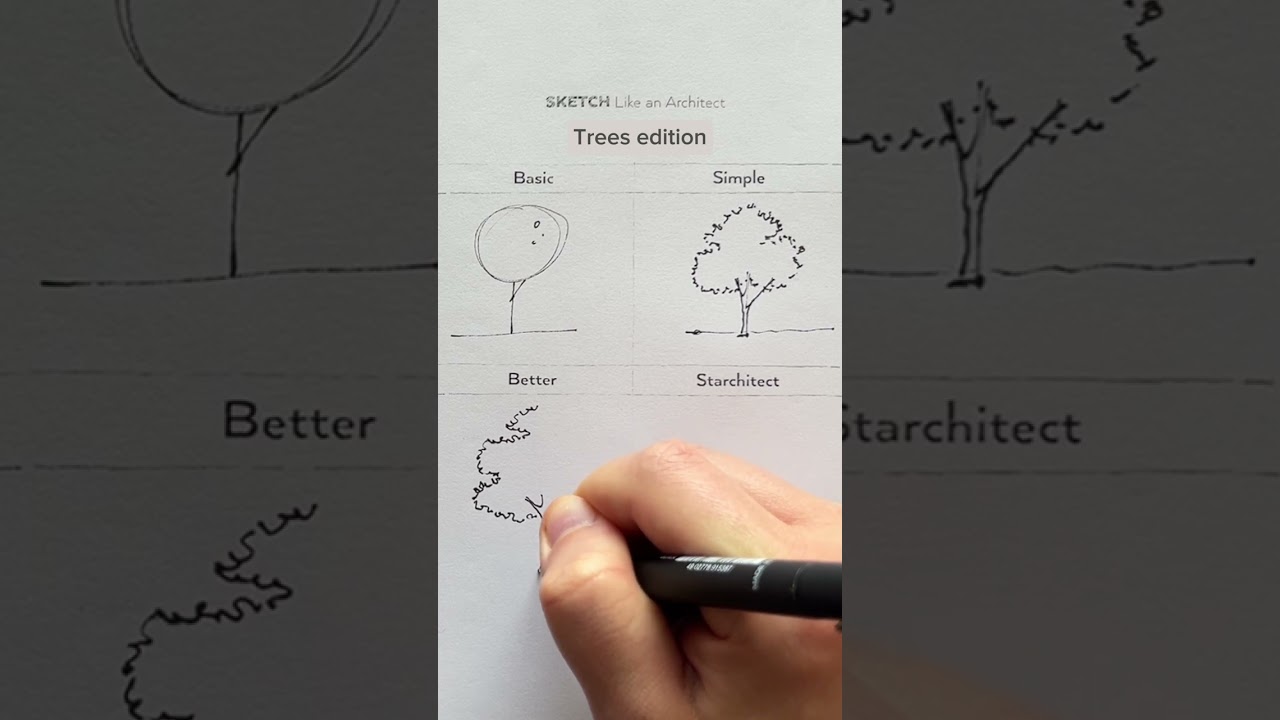 SKETCH Like an Architect
Trees edition
Basic
Simple
Better
Starchitect
Better
Starchitect